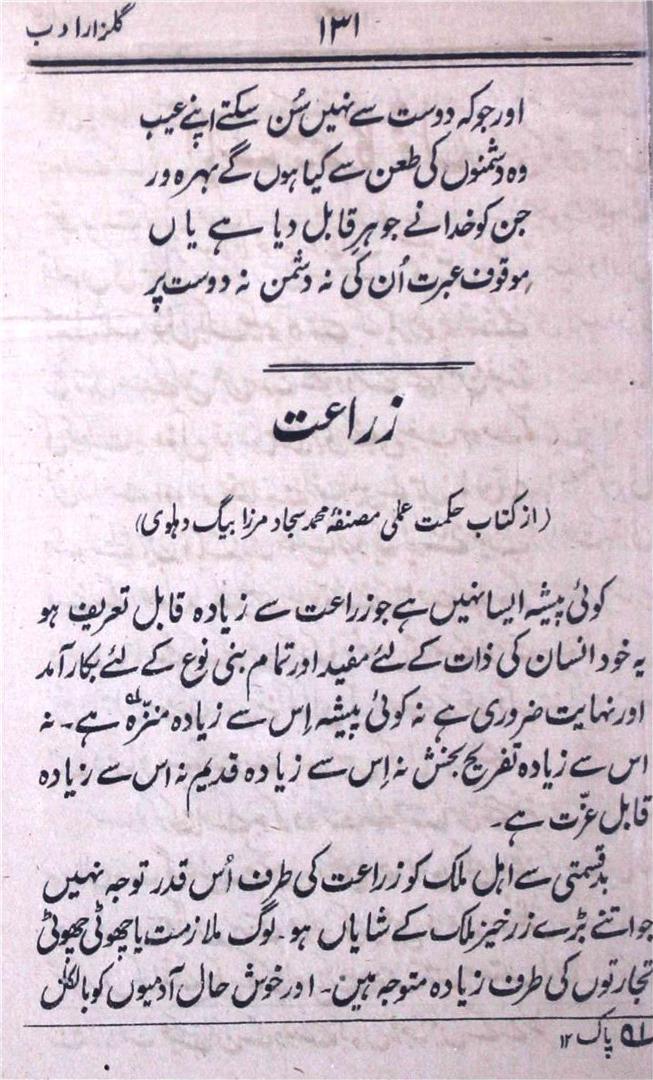 گلزار ادب
۱۳۱
اور جو کہ دوست سے نہیں سُن سکتے اپنے عیب
وہ دشمنوں کی طعن سے کیا ہوں گے بہرہ ور
جن کو خدا نے جوہرِ قابل دیا ہے یاں
موقوف عبرت اُن کی نہ دشمن نہ دوست پر
زراعت
(از کتاب حکمت عملی مصنفۂ محمد سجاد مرزا بیگ دہلوی)
کوئی پیشہ ایسا نہیں ہے جو زراعت سے زیادہ قابل تعریف ہو
یہ خود انسان کی ذات کے لئے مفید اور تمام بنی نوع کے لئے بکار آمد
اور نہایت ضروری ہے نہ کوئی پیشہ اِس سے زیادہ منزّہ ہے۔ نہ
اس سے زیادہ تفریح بخش نہ اِس سے زیادہ قدیم نہ اس سے زیادہ
قابل عزّت ہے۔
بدقسمتی سے اہل ملک کو زراعت کی طرف اُس قدر توجہ نہیں
جو اتنے بڑے زرخیز ملک کے شایاں ہو۔ لوگ ملازمت یا چھوٹی چھوٹی
تجارتوں کی طرف زیادہ متوجہ ہیں۔ اور خوش حال آدمیوں کو بالکل
۵۱ پاک ۱۲